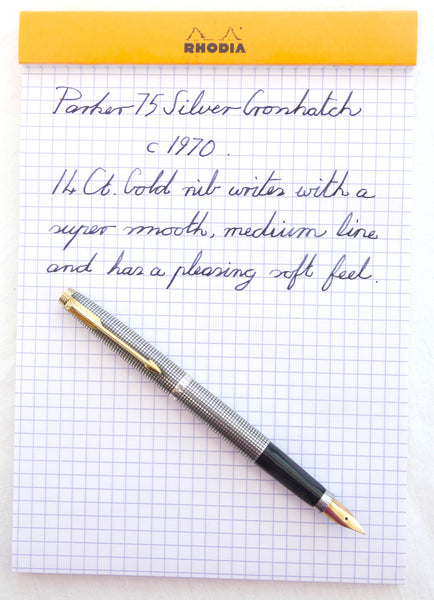 RHODIA
Parker 75 Silver Cronhatch
c 1970 .
14 Ct. Gold nib writes with a
super smooth, medium line
and has a pleasing soft feel .